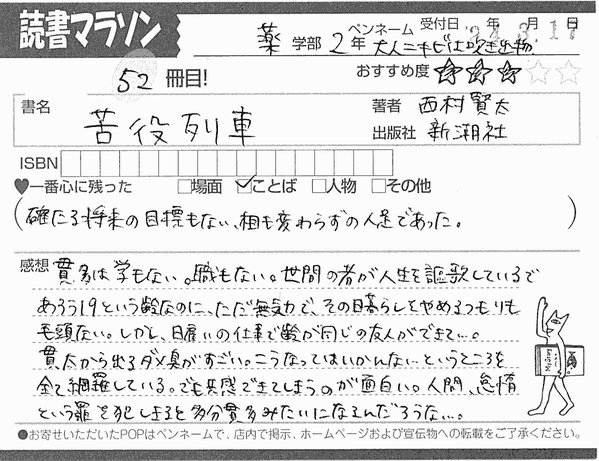 読書マラソン
受付日 年 月 日
24.3.17
薬 学部 2年 ペンネーム 大人ニキビは吹き出物
52 冊目!
おすすめ度 ★★★☆☆
書名 苦役列車
著者 西村賢太
出版社 新潮社
ISBN
♥一番心に残った □場面 ☑ことば □人物 □その他
(確たる将来の目標もない、相も変わらずの人足であった。)
感想 貫多は学もない。職もない。世間の者が人生を謳歌しているで
あろう19という齢なのに、ただ無気力で、その日暮らしをやめるつもりも
毛頭ない。しかし、日雇いの仕事で齢が同じの友人ができて…。
貫太から出るダメ臭がすごい。こうなってはいかんない というところを
全て網羅している。でも共感できてしまうのが面白い。人間、怠惰
という罪を犯しすぎると多分貫多みたいになるんだろうな…。
●お寄せいただいたPOPはペンネームで、店内で掲示、ホームページおよび宣伝物への転載をご了承ください。